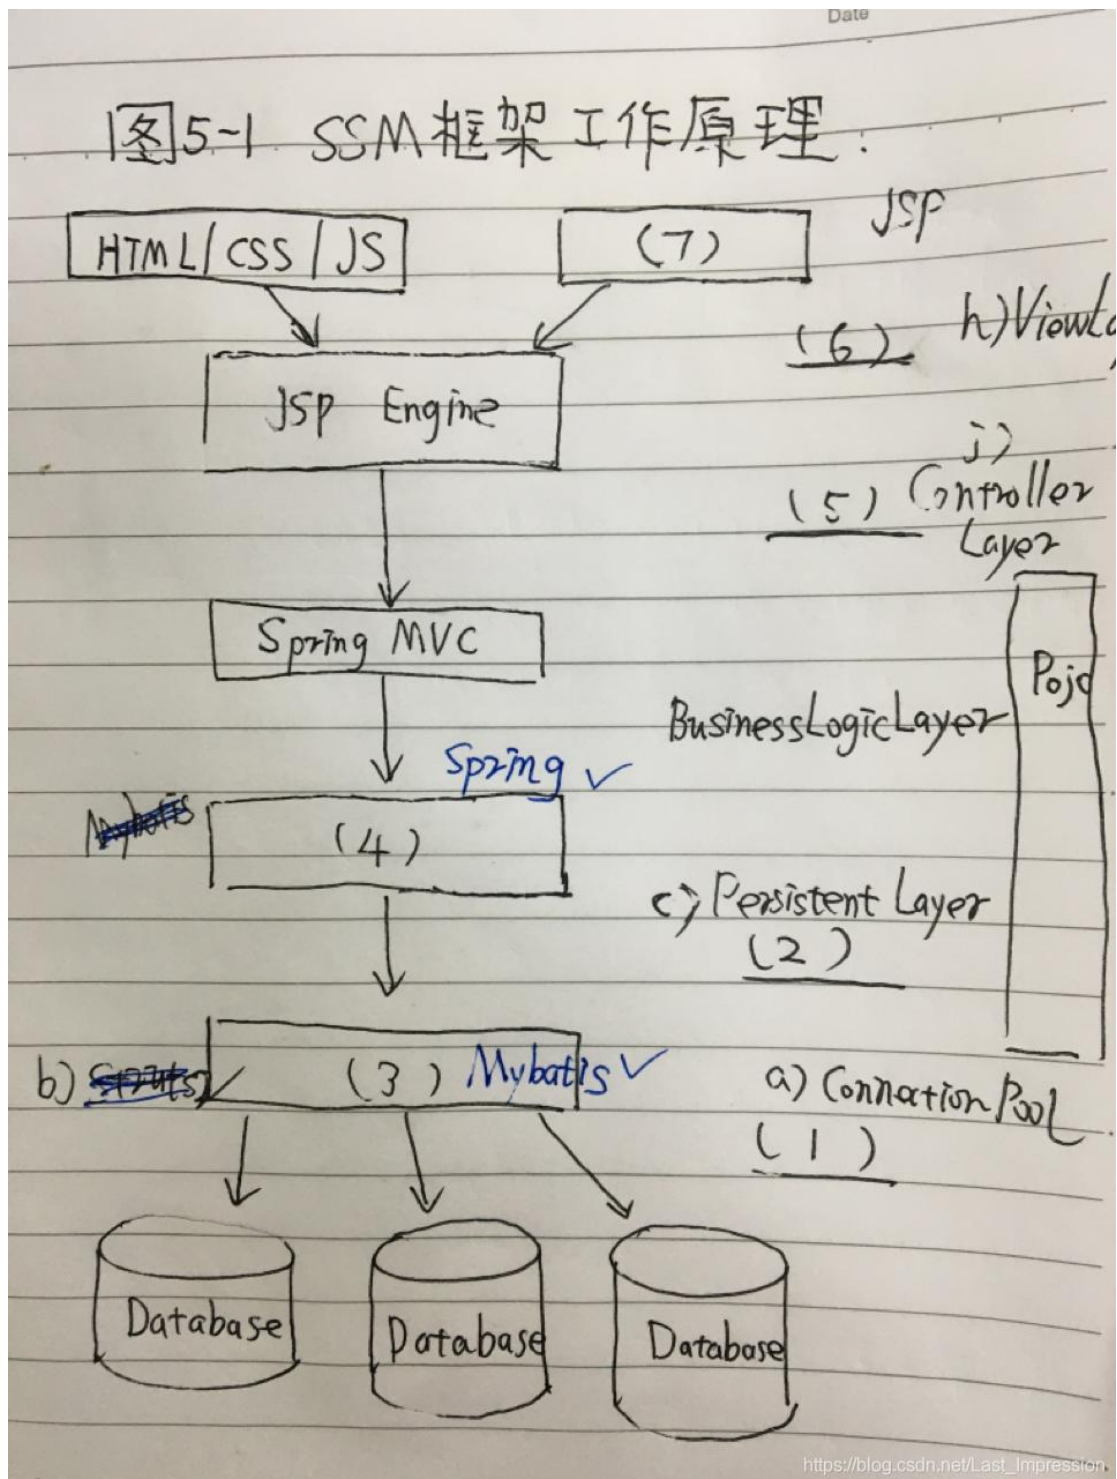 Date
图5-1 SSM框架工作原理:
JSP
HTML/CSS/JS
(7)
(6)
h)ViewLa
JSP Engine
j)
(5) Controller
Layer
Spring MVC
Pojo
BusinessLogicLayer
Spring ✓
Mybatis
(4)
c) Persistent Layer
(2)
b)
(3) Mybatis ✓
a) Connection Pool
(1)
Database
Database
Database
https://blog.csdn.net/Last_Impression